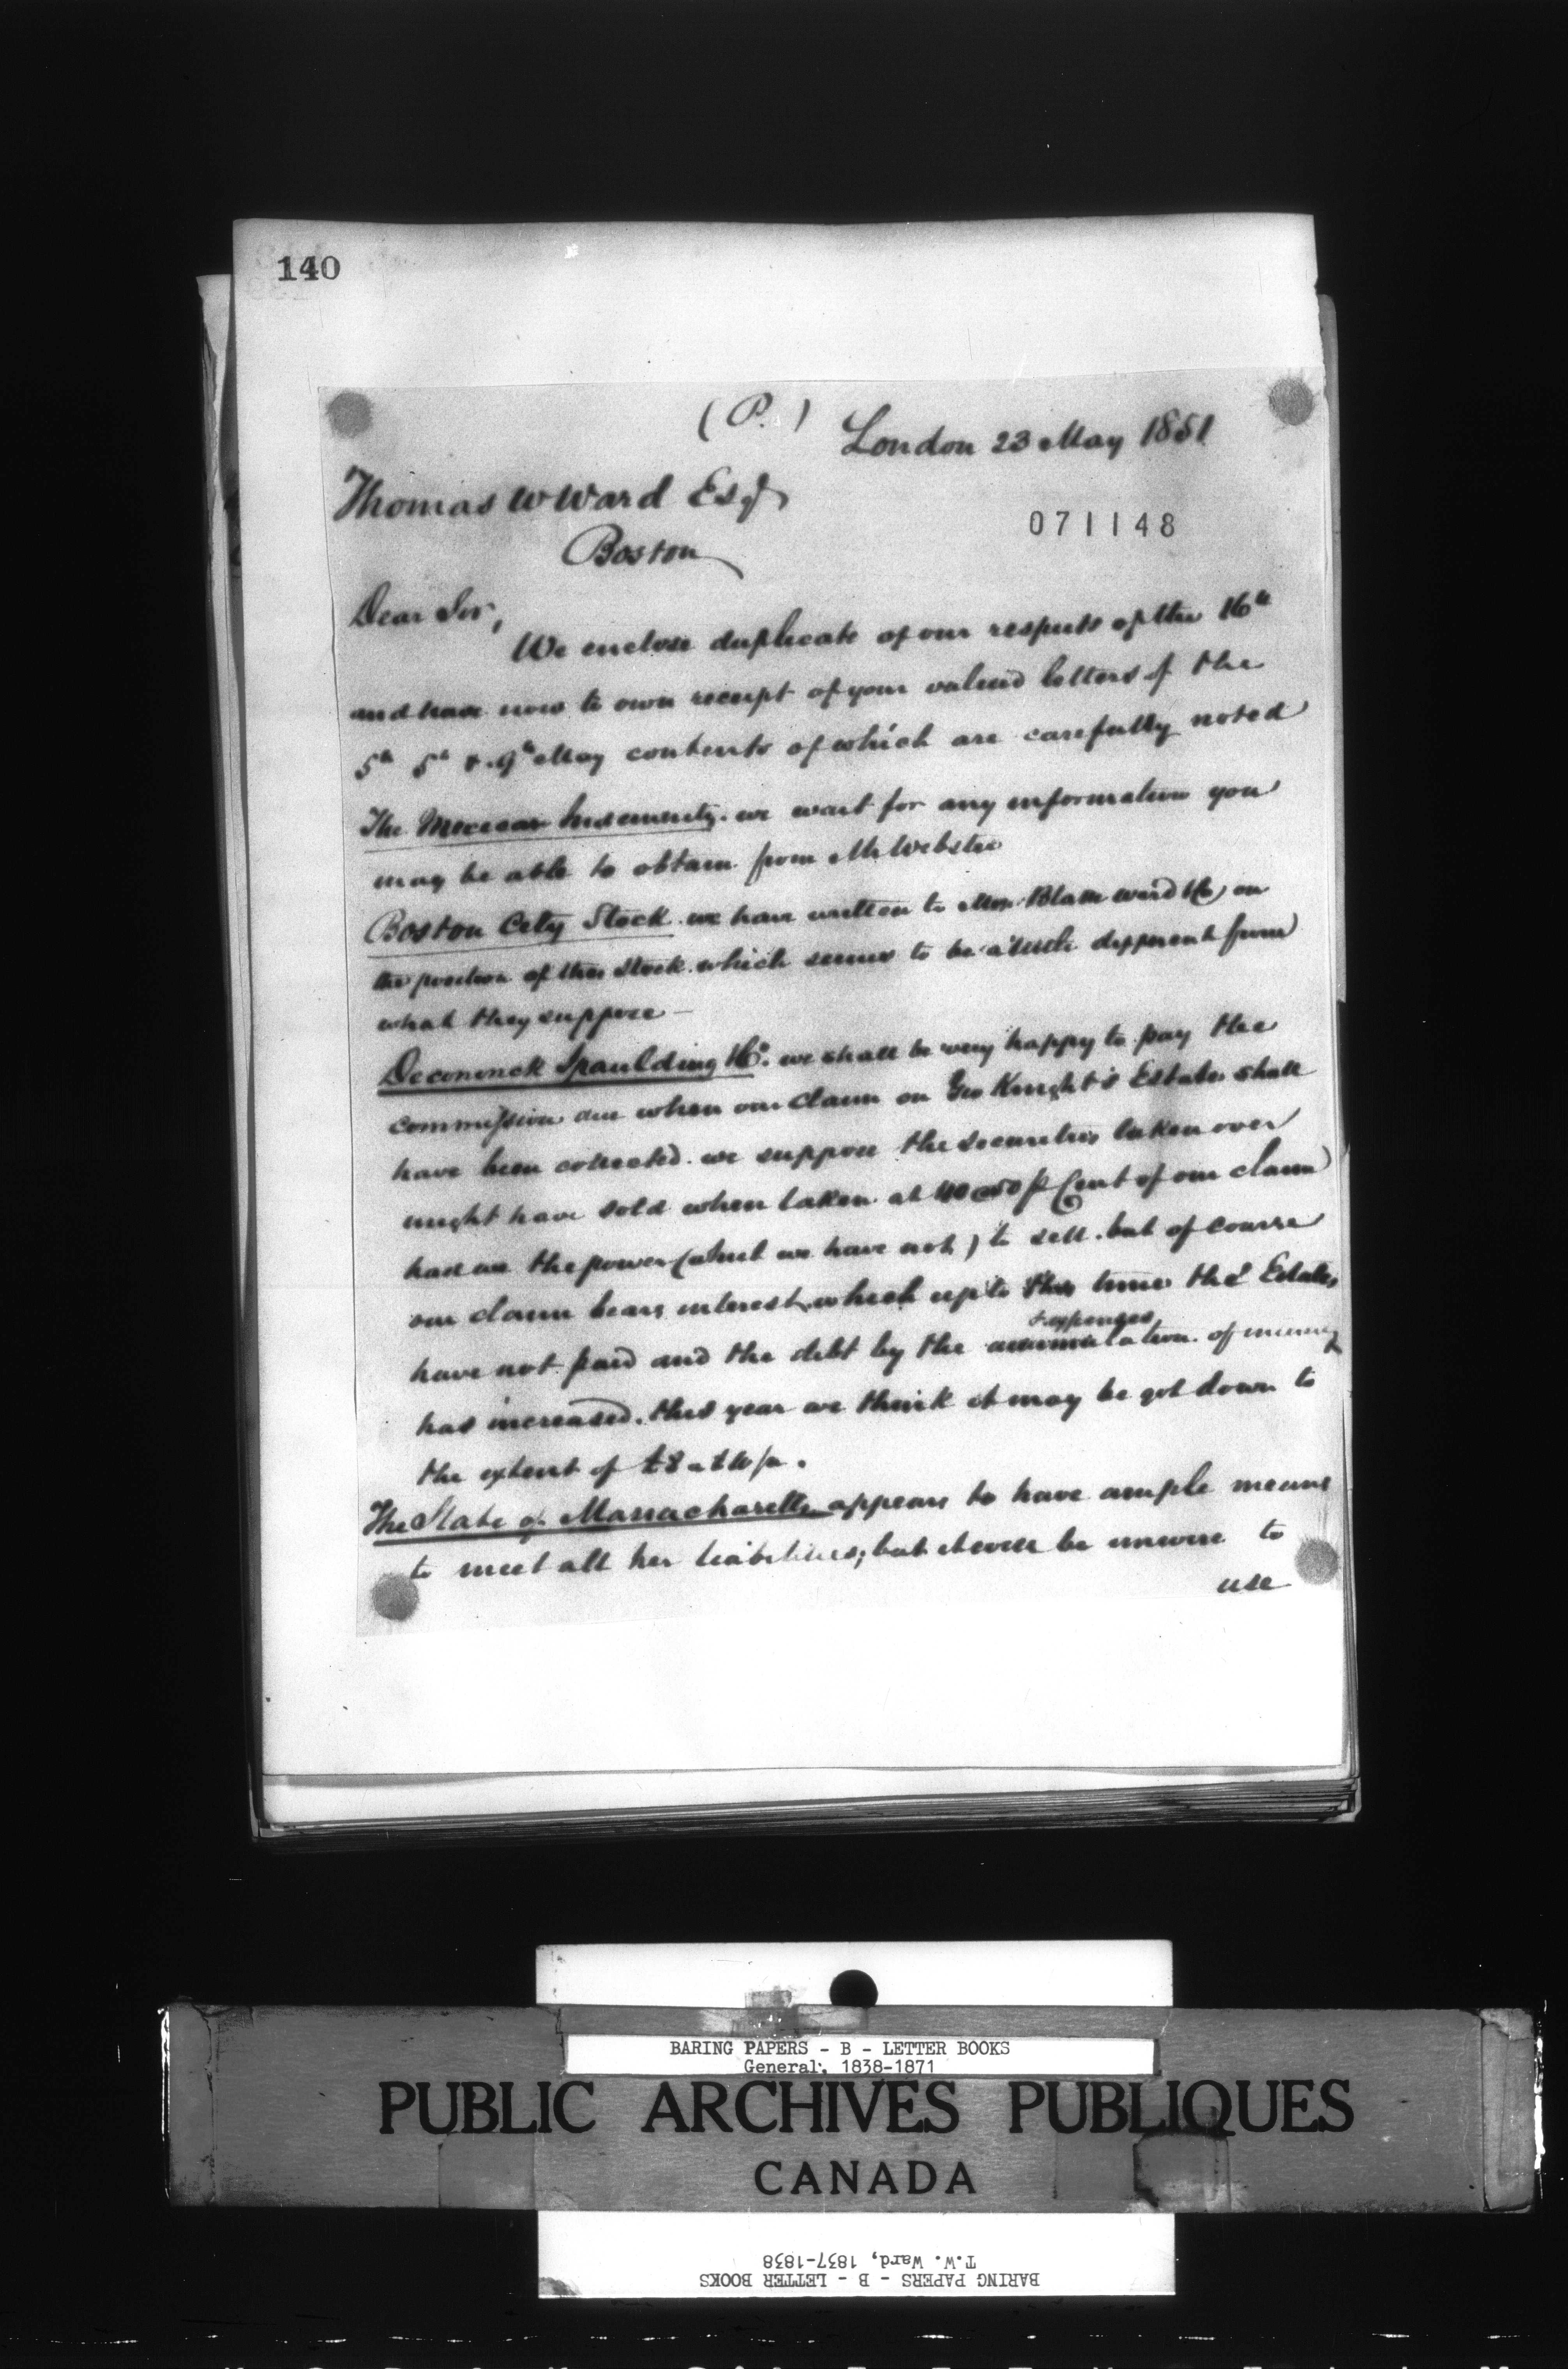 140
(P.) London 23 May 1851
Thomas W Ward Esqr
071148
Boston
Dear Sir,
We enclose duplicate of our respects of the 16th
and have now to own receipt of your valued letters of the
5th 5th & 9th May contents of which are carefully noted
The Mexican Indemnity. we wait for any information you
may be able to obtain from Mr Webster
Boston City Stock. we have written to Messrs Blake Ward &Co on
the position of this stock which seems to be a little different from
what they suppose —
Deconinck Spaulding &Co. we shall be very happy to pay the
commission due when our claim on Geo Knight's Estates shall
have been collected. we suppose the securities taken over
might have sold when taken at 40 @ 50 p Cent of our claim
had we the power (which we have not) to sell. but of course
our claim bears interest, which up to this time the Estates
& expenses
have not paid and the debt by the accumulation of
has increased. this year we think it may be got down to
the extent of
The State of Massachusetts appears to have ample means
to meet all her liabilities; but it will be unwise to
use
BARING PAPERS - B - LETTER BOOKS
General, 1838-1871
PUBLIC ARCHIVES PUBLIQUES
CANADA
T.W. Ward, 1837-1838
BARING PAPERS - B - LETTER BOOKS